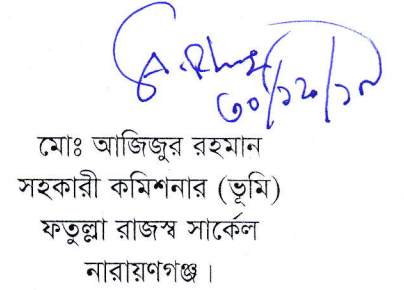 ৩০/১২/১৮
মোঃ আজিজুর রহমান
সহকারী কমিশনার (ভূমি)
ফতুল্লা রাজস্ব সার্কেল
নারায়ণগঞ্জ।